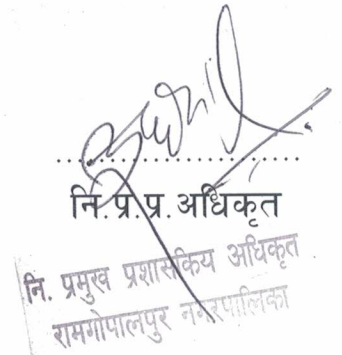 Sunil
..............................
नि.प्र.प्र.अधिकृत
नि. प्रमुख प्रशासकिय अधिकृत
रामगोपालपुर नगरपालिका